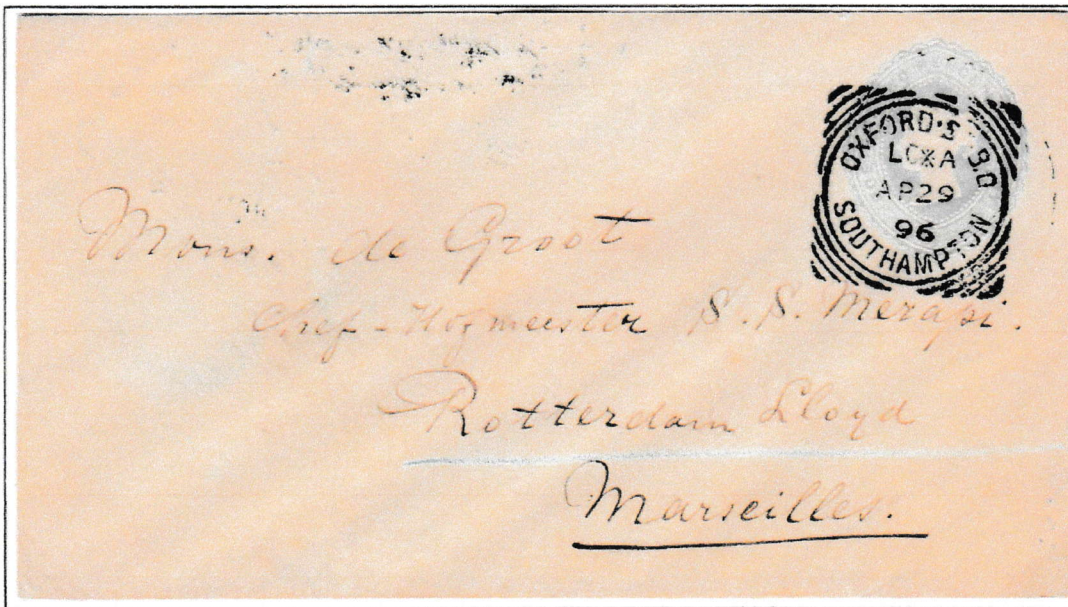 OXFORD·S S.O
LCXA
AP 29
96
SOUTHAMPTON
Mons. de Groot
Chef-Hofmeester S.S. Merapi.
Rotterdam Lloyd
Marseilles.